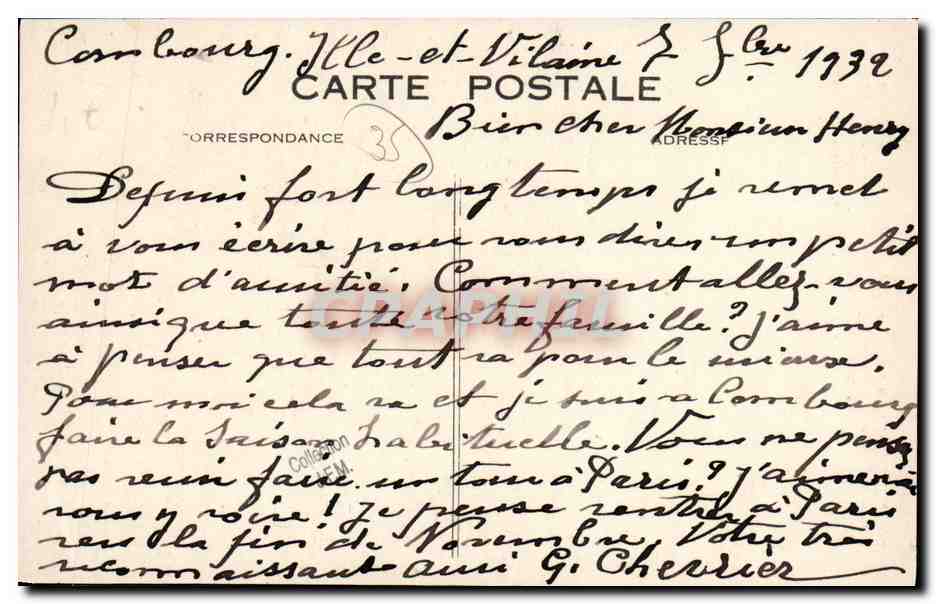 Combourg. Ille-et-Vilaine 7 Sbre 1932
CARTE POSTALE
Bien cher Monsieur Henry
CORRESPONDANCE
35
ADRESSE
Depuis fort longtemps je remet
à vous écrire pour vous dires un petit
mot d'amitié. Comment allez-vous
ainsi que toute votre famille? J'aime
à penser que tout va pour le mieux.
Pour moi cela va et je suis a Combourg
faire la saison habituelle. Vous ne pensez
pas venir faire un tour à Paris? J'aimerais
vous y voire! Je pense rentrer à Paris
vers la fin de Novembre. Votre très
reconnaissante amie G. Chevrier
Collection
H.F.M.
CRAPHIL